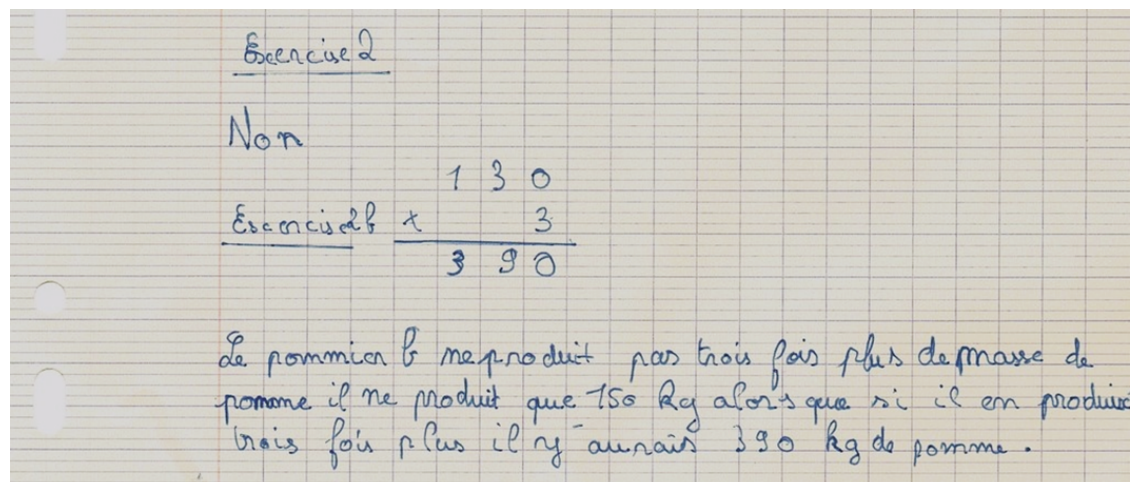 Exercise 2
Non
1 3 0
Exercise 2b x 3
3 9 0
Le pommier b ne produit pas trois fois plus de masse de
pomme il ne produit que 150 kg alors que si il en produis
trois fois plus il y aurais 390 kg de pomme.